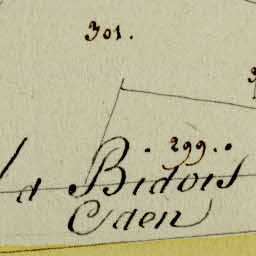 301.
. 299. .
d Bidois
Caen